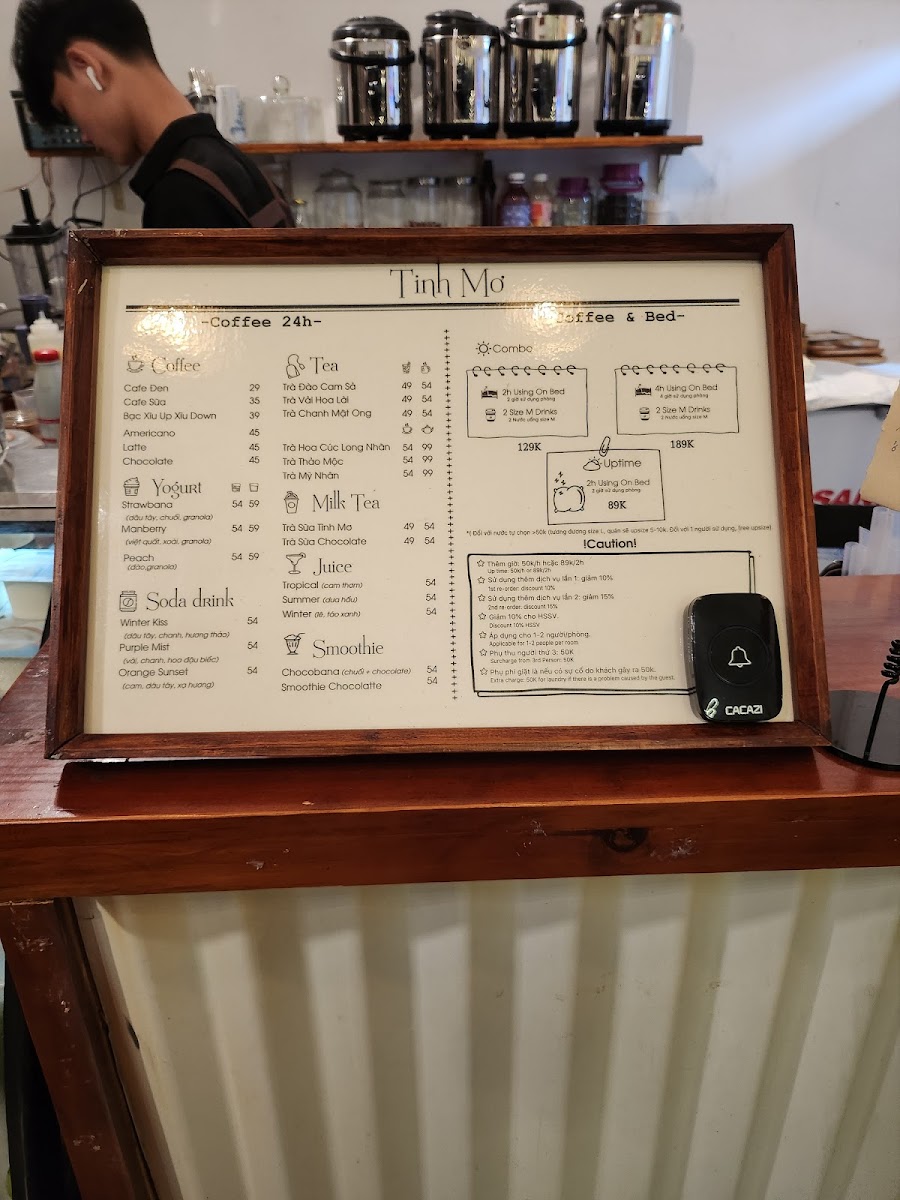 Tinh Mơ
-Coffee 24h-
Coffee
Cafe Đen 29
Cafe Sữa 35
Bạc Xỉu Up Xỉu Down 39
Americano 45
Latte 45
Chocolate 45
Yogurt
Strawbana 54 59
(dâu tây, chuối, granola)
Manberry 54 59
(việt quất, xoài, granola)
Peach 54 59
(đào,granola)
Soda drink
Winter Kiss 54
(dâu tây, chanh, hương thảo)
Purple Mist 54
(vải, chanh, hoa đậu biếc)
Orange Sunset 54
(cam, dâu tây, xạ hương)
Tea
Trà Đào Cam Sả 49 54
Trà Vải Hoa Lài 49 54
Trà Chanh Mật Ong 49 54
Trà Hoa Cúc Long Nhãn 54 99
Trà Thảo Mộc 54 99
Trà Mỹ Nhân 54 99
Milk Tea
Trà Sữa Tinh Mơ 49 54
Trà Sữa Chocolate 49 54
Juice
Tropical (cam thơm) 54
Summer (dưa hấu) 54
Winter (lê, táo xanh) 54
Smoothie
Chocobana (chuối + chocolate) 54
Smoothie Chocolatte 54
Coffee & Bed-
Combo
2h Using On Bed
2 giờ sử dụng phòng
2 Size M Drinks
2 Nước uống size M
129K
4h Using On Bed
4 giờ sử dụng phòng
2 Size M Drinks
2 Nước uống size M
189K
Uptime
2h Using On Bed
2 giờ sử dụng phòng
89K
*( Đối với nước tự chọn >50k (tương đương size L, quán sẽ upsize 5-10k. Đối với 1 người sử dụng, free upsize)
!Caution!
Thêm giờ: 50k/h hoặc 89k/2h
Up time: 50k/h or 89k/2h
Sử dụng thêm dịch vụ lần 1: giảm 10%
1st re-order: discount 10%
Sử dụng thêm dịch vụ lần 2: giảm 15%
2nd re-order: discount 15%
Giảm 10% cho HSSV.
Discount 10% HSSV
Áp dụng cho 1-2 người/phòng.
Applicable for 1-2 people per room
Phụ thu người thứ 3: 50K
Surcharge from 3rd Person: 50K
Phụ phí giặt là nếu có sự cố do khách gây ra 50k.
Extra charge: 50K for laundry if there is a problem caused by the guest.
CACAZI